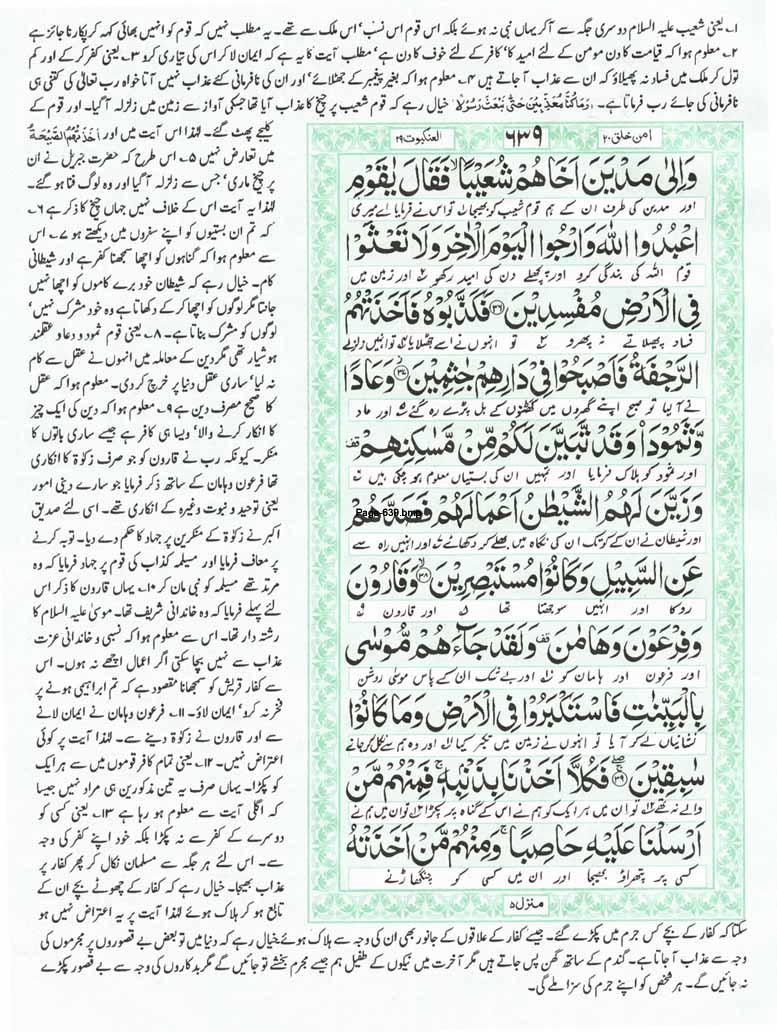 ۱۔ یعنی شعیب علیہ السلام دوسری جگہ سے آ کر یہاں نبی نہ ہوئے بلکہ اس قوم اس نسب‘ اس ملک سے تھے۔ یہ مطلب نہیں کہ قوم کو انہیں بھائی کہہ کر پکارنا جائز ہے
۲۔ معلوم ہوا کہ قیامت کا دن مومن کے لئے امید کا‘ کافر کے لئے خوف کا دن ہے‘ مطلب آیت کا یہ ہے کہ ایمان لا کر اس کی تیاری کرو ۳۔ یعنی کفر کر کے اور کم
تول کر ملک میں فساد نہ پھیلاؤ کہ ان سے عذاب آ جاتے ہیں ۴۔ معلوم ہوا کہ بغیر پیغمبر کے جھٹلائے‘ اور ان کی نافرمانی کئے عذاب نہیں آتا خواہ رب تعالٰی کی کتنی ہی
نافرمانی کی جائے رب فرماتا ہے۔ وَمَا كُنَّا مُعَذِّبِيْنَ حَتّٰى نَبْعَثَ رَسُوْلًا خیال رہے کہ قوم شعیب پر چیخ کا عذاب آیا تھا جسکی آواز سے زمین میں زلزلہ آ گیا۔ اور قوم کے
کلیجے پھٹ گئے۔ لہٰذا اس آیت میں اور اَخَذَتْهُمُ الصَّيْحَةُ
میں تعارض نہیں ۵۔ اس طرح کہ حضرت جبریل نے ان
پر چیخ ماری‘ جس سے زلزلہ آ گیا اور وہ لوگ فنا ہو گئے۔
لہٰذا یہ آیت اس کے خلاف نہیں جہاں چیخ کا ذکر ہے ۶۔
کہ تم ان بستیوں کو اپنے سفروں میں دیکھتے ہو ۷۔ اس
سے معلوم ہوا کہ گناہوں کو اچھا سمجھنا کفر ہے اور شیطانی
کام۔ خیال رہے کہ شیطان خود برے کاموں کو اچھا نہیں
جانتا مگر لوگوں کو اچھا کر کے دکھاتا ہے وہ خود مشرک نہیں‘
لوگوں کو مشرک بناتا ہے۔ ۸۔ یعنی قوم ثمود و عاد و عقلمند
ہوشیار تھی مگر دین کے معاملہ میں انہوں نے عقل سے کام
نہ لیا‘ ساری عقل دنیا پر خرچ کر دی۔ معلوم ہوا کہ عقل
کا صحیح مصرف دین ہے ۹۔ معلوم ہوا کہ دین کی ایک چیز
کا انکار کرنے والا‘ ویسا ہی کافر ہے جیسے ساری باتوں کا
منکر۔ کیونکہ رب نے قارون کو جو صرف زکوٰۃ کا انکاری
تھا فرعون و ہامان کے ساتھ ذکر فرمایا جو سارے دینی امور
یعنی توحید و نبوت وغیرہ کے انکاری تھے۔ اسی لئے صدیق
اکبر نے زکوٰۃ کے منکرین پر جہاد کا حکم دے دیا۔ توبہ کرنے
پر معاف فرمایا اور مسیلمہ کذاب کی قوم پر جہاد فرمایا کہ وہ
مرتد تھے مسیلمہ کو نبی مان کر ۱۰۔ یہاں قارون کا ذکر اس
لئے پہلے فرمایا کہ وہ خاندانی شریف تھا۔ موسیٰ علیہ السلام کا
رشتہ دار تھا۔ اس سے معلوم ہوا کہ نسبی و خاندانی عزت
عذاب سے نہیں بچا سکتی اگر اعمال اچھے نہ ہوں۔ اس
سے کفار قریش کو سمجھانا مقصود ہے کہ تم ابراہیمی ہونے پر
فخر نہ کرو‘ ایمان لاؤ۔ ۱۱۔ فرعون و ہامان نے ایمان لانے
سے اور قارون نے زکوٰۃ دینے سے۔ لہٰذا آیت پر کوئی
اعتراض نہیں۔ ۱۲۔ یعنی تمام کافر قوموں میں سے ہر ایک
کو پکڑا۔ یہاں صرف یہ تین مذکورین ہی مراد نہیں جیسا
کہ اگلی آیت سے معلوم ہو رہا ہے ۱۳۔ یعنی کسی کو
دوسرے کے کفر سے نہ پکڑا بلکہ خود اپنے کفر کی وجہ
سے۔ اس لئے ہر جگہ سے مسلمان نکال کر پھر کفار پر
عذاب بھیجا۔ خیال رہے کہ کفار کے چھوٹے بچے ان کے
تابع ہو کر ہلاک ہوئے لہٰذا آیت پر یہ اعتراض نہیں ہو
امن خلق ۲۰ ۶۳۹ العنکبوت ۲۹
وَاِلٰى مَدْيَنَ اَخَاهُمْ شُعَيْبًا ۙ فَقَالَ يٰقَوْمِ
اور مدین کی طرف ان کے ہم قوم شعیب کو بھیجا ۱ تو اس نے فرمایا اے میری
اعْبُدُوا اللّٰهَ وَارْجُوا الْيَوْمَ الْاٰخِرَ وَلَا تَعْثَوْا
قوم اللہ کی بندگی کرو اور پچھلے دن کی امید رکھو ۲ اور زمین میں
فِى الْاَرْضِ مُفْسِدِيْنَ ﴿۳۶﴾ فَكَذَّبُوْهُ فَاَخَذَتْهُمُ
فساد پھیلاتے نہ پھرو ۳ تو انہوں نے اسے جھٹلایا ۴ تو انہیں زلزلے
الرَّجْفَةُ فَاَصْبَحُوْا فِىْ دَارِهِمْ جٰثِمِيْنَ ﴿۳۷﴾ وَعَادًا
نے آ لیا تو صبح اپنے گھروں میں گھٹنوں کے بل پڑے رہ گئے ۵ اور عاد
وَّثَمُوْدَا۟ وَقَدْ تَّبَيَّنَ لَكُمْ مِّنْ مَّسٰكِنِهِمْ ۟
اور ثمود کو ہلاک فرمایا اور تمہیں ان کی بستیاں معلوم ہو چکی ہیں ۶
وَزَيَّنَ لَهُمُ الشَّيْطٰنُ اَعْمَالَهُمْ فَصَدَّهُمْ
Page-639.bmp
اور شیطان نے ان کے کوتک ان کی نگاہ میں بھلے کر دکھائے ۷ اور انہیں راہ سے
عَنِ السَّبِيْلِ وَكَانُوْا مُسْتَبْصِرِيْنَ ﴿۳۸﴾ وَقَارُوْنَ
روکا اور انہیں سوجھتا تھا ۸ اور قارون ۹
وَفِرْعَوْنَ وَهَامٰنَ ۟ وَلَقَدْ جَآءَهُمْ مُّوْسٰى
اور فرعون اور ہامان کو ۱۰ اور بے شک ان کے پاس موسٰی روشن
بِالْبَيِّنٰتِ فَاسْتَكْبَرُوْا فِى الْاَرْضِ وَمَا كَانُوْا
نشانیاں لے کر آیا تو انہوں نے زمین میں تکبر کیا ۱۱ اور وہ ہم سے نکل کر جانے
سٰبِقِيْنَ ﴿۳۹﴾ فَكُلًّا اَخَذْنَا بِذَنْۢبِهٖ ۚ فَمِنْهُمْ مَّنْ
والے نہ تھے ۱۲ تو ان میں ہر ایک کو ہم نے اس کے گناہ پر پکڑا ۱۳ تو ان میں ہم نے
اَرْسَلْنَا عَلَيْهِ حَاصِبًا ۚ وَمِنْهُمْ مَّنْ اَخَذَتْهُ
کسی پر پتھراؤ بھیجا اور ان میں کسی کو چنگھاڑ نے
منزل ۵
سکتا کہ کفار کے بچے کس جرم میں پکڑے گئے۔ جیسے کفار کے علاقوں کے جانور بھی ان کی وجہ سے ہلاک ہوئے خیال رہے کہ دنیا میں تو بعض بے قصوروں پر مجرموں کی
وجہ سے عذاب آ جاتا ہے۔ گندم کے ساتھ گھن پس جاتے ہیں مگر آخرت میں نیکوں کے طفیل ہم جیسے مجرم بخشے تو جائیں گے مگر بدکاروں کی وجہ سے بے قصور پکڑے
نہ جائیں گے۔ ہر شخص کو اپنے جرم کی سزا ملے گی۔